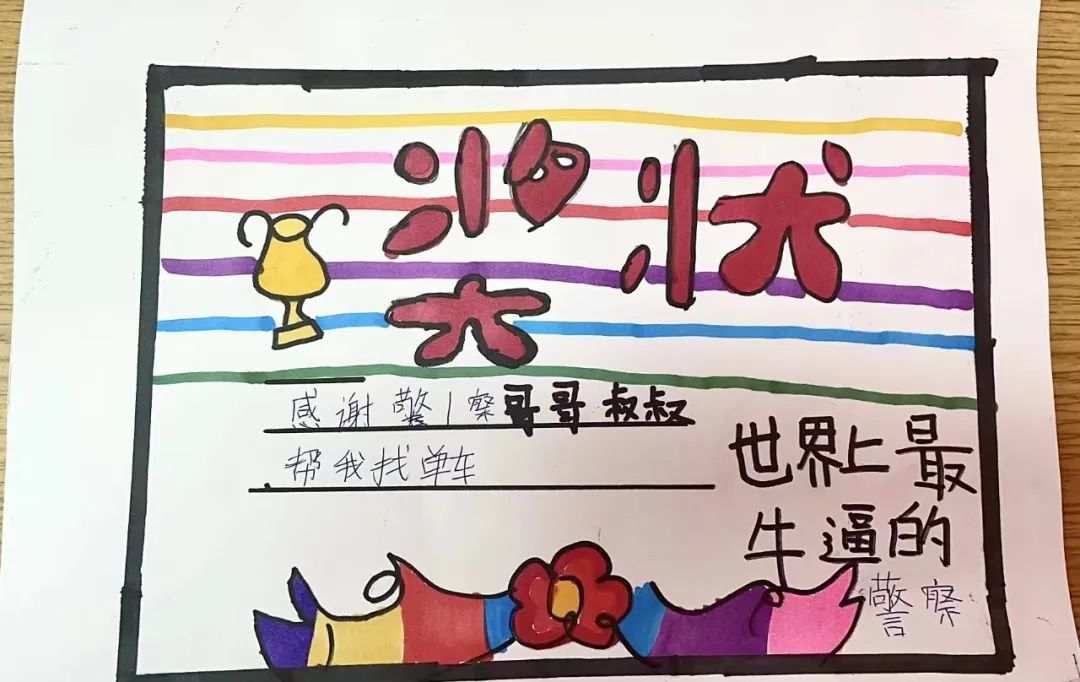 奖状
感谢警察哥哥叔叔
帮我找单车
世界上最
牛逼的
警察